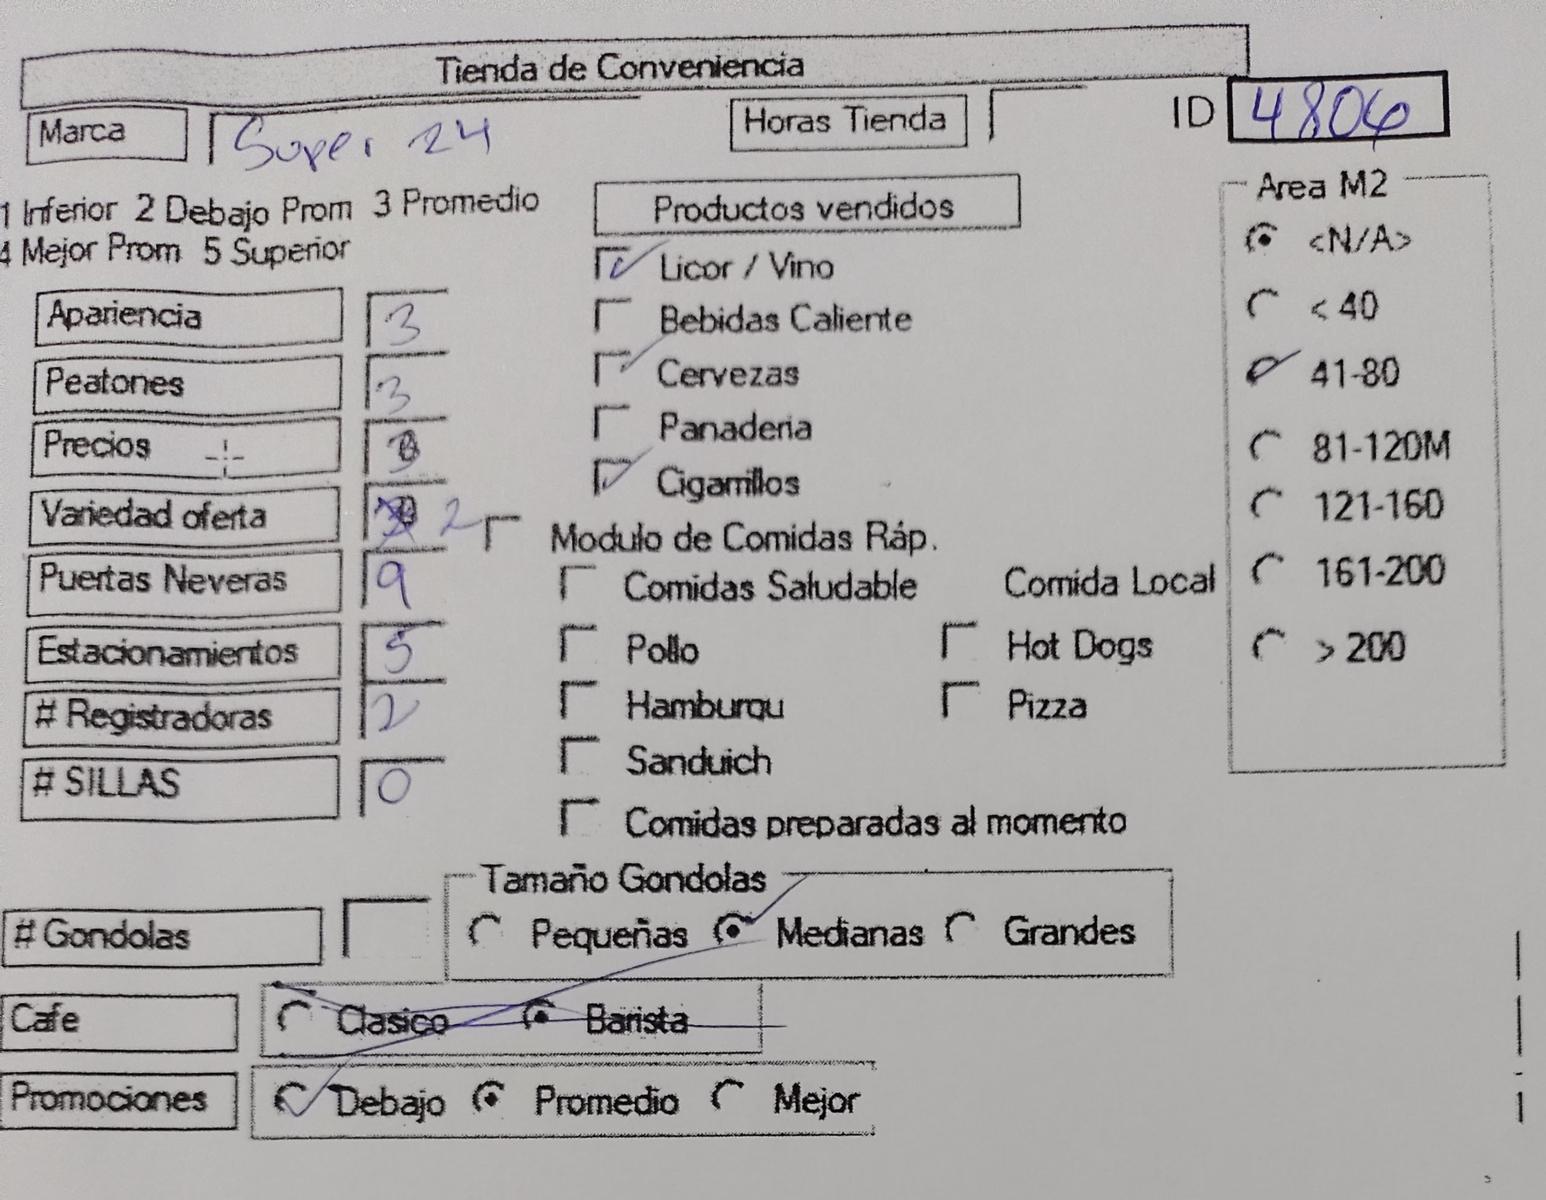 Tienda de Conveniencia
Marca Super 24 Horas Tienda ID 4806
1 Inferior 2 Debajo Prom 3 Promedio
4 Mejor Prom 5 Superior
Productos vendidos
Licor / Vino
Bebidas Caliente
Cervezas
Panaderia
Cigarrillos
Modulo de Comidas Ráp.
Comidas Saludable Comida Local
Pollo Hot Dogs
Hamburqu Pizza
Sanduich
Comidas preparadas al momento
Area M2
<N/A>
< 40
41-80
81-120M
121-160
161-200
> 200
Apariencia 3
Peatones 3
Precios 3
Variedad oferta 2
Puertas Neveras 9
Estacionamientos 5
# Registradoras 2
# SILLAS 0
Tamaño Gondolas
# Gondolas Pequeñas Medianas Grandes
Cafe Clasico Barista
Promociones Debajo Promedio Mejor